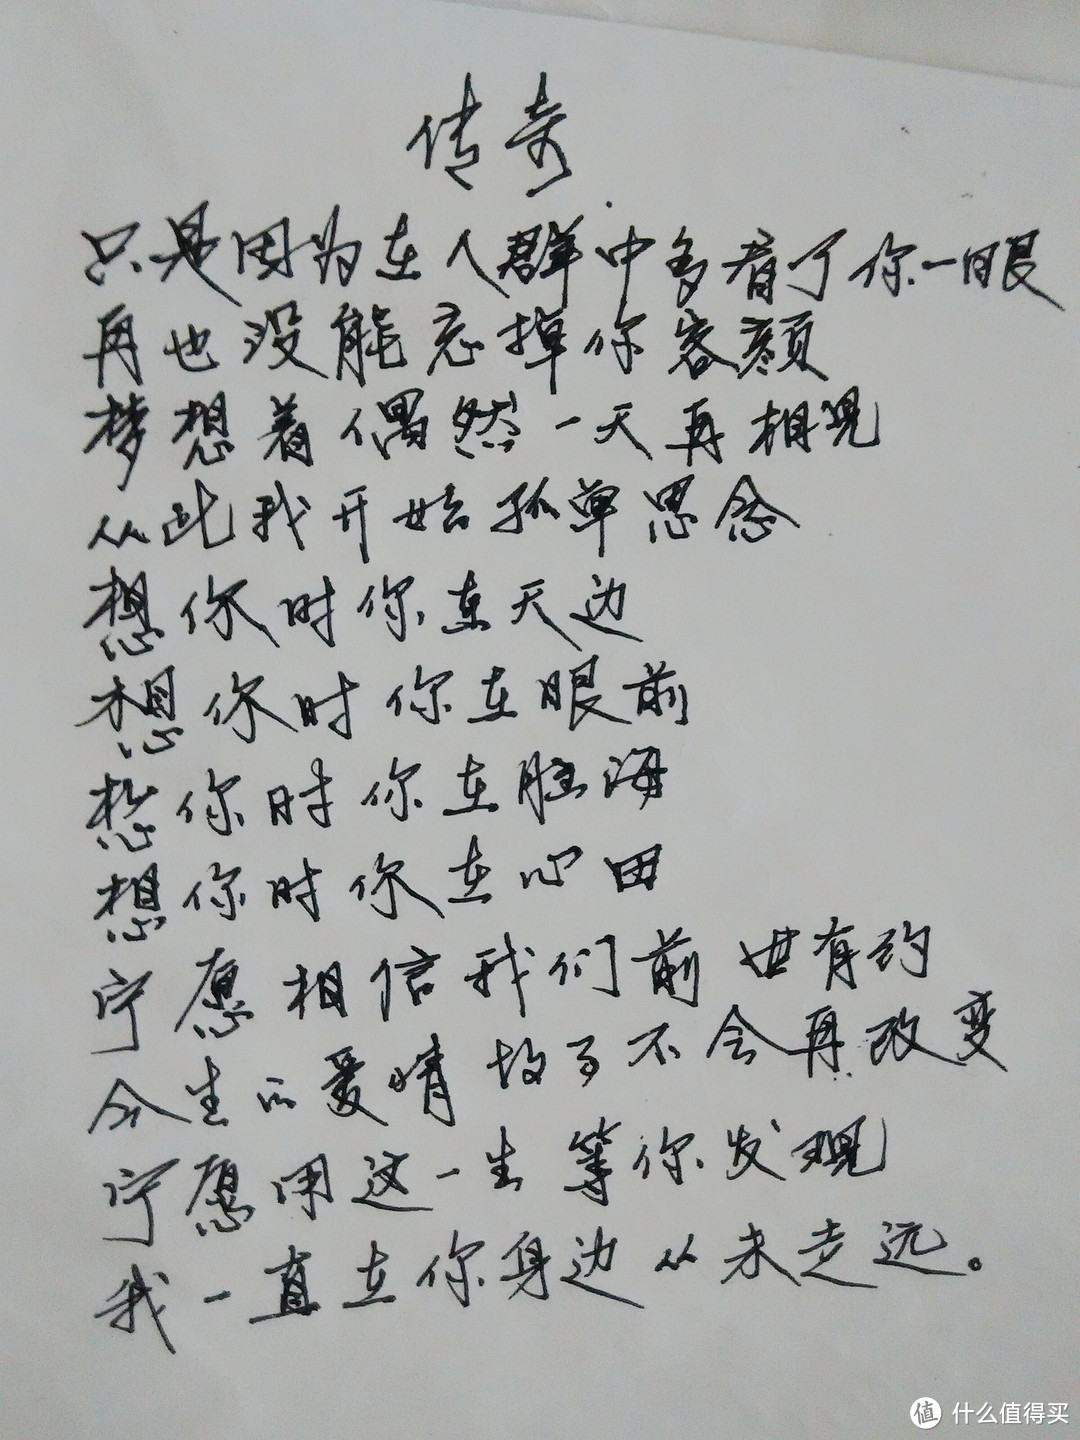 传奇
只是因为在人群中多看了你一眼
再也没能忘掉你容颜
梦想着偶然一天再相见
从此我开始孤单思念
想你时你在天边
想你时你在眼前
想你时你在脑海
想你时你在心田
宁愿相信我们前世有约
今生的爱情故事不会再改变
宁愿用这一生等你发现
我一直在你身边从未走远。
值 什么值得买